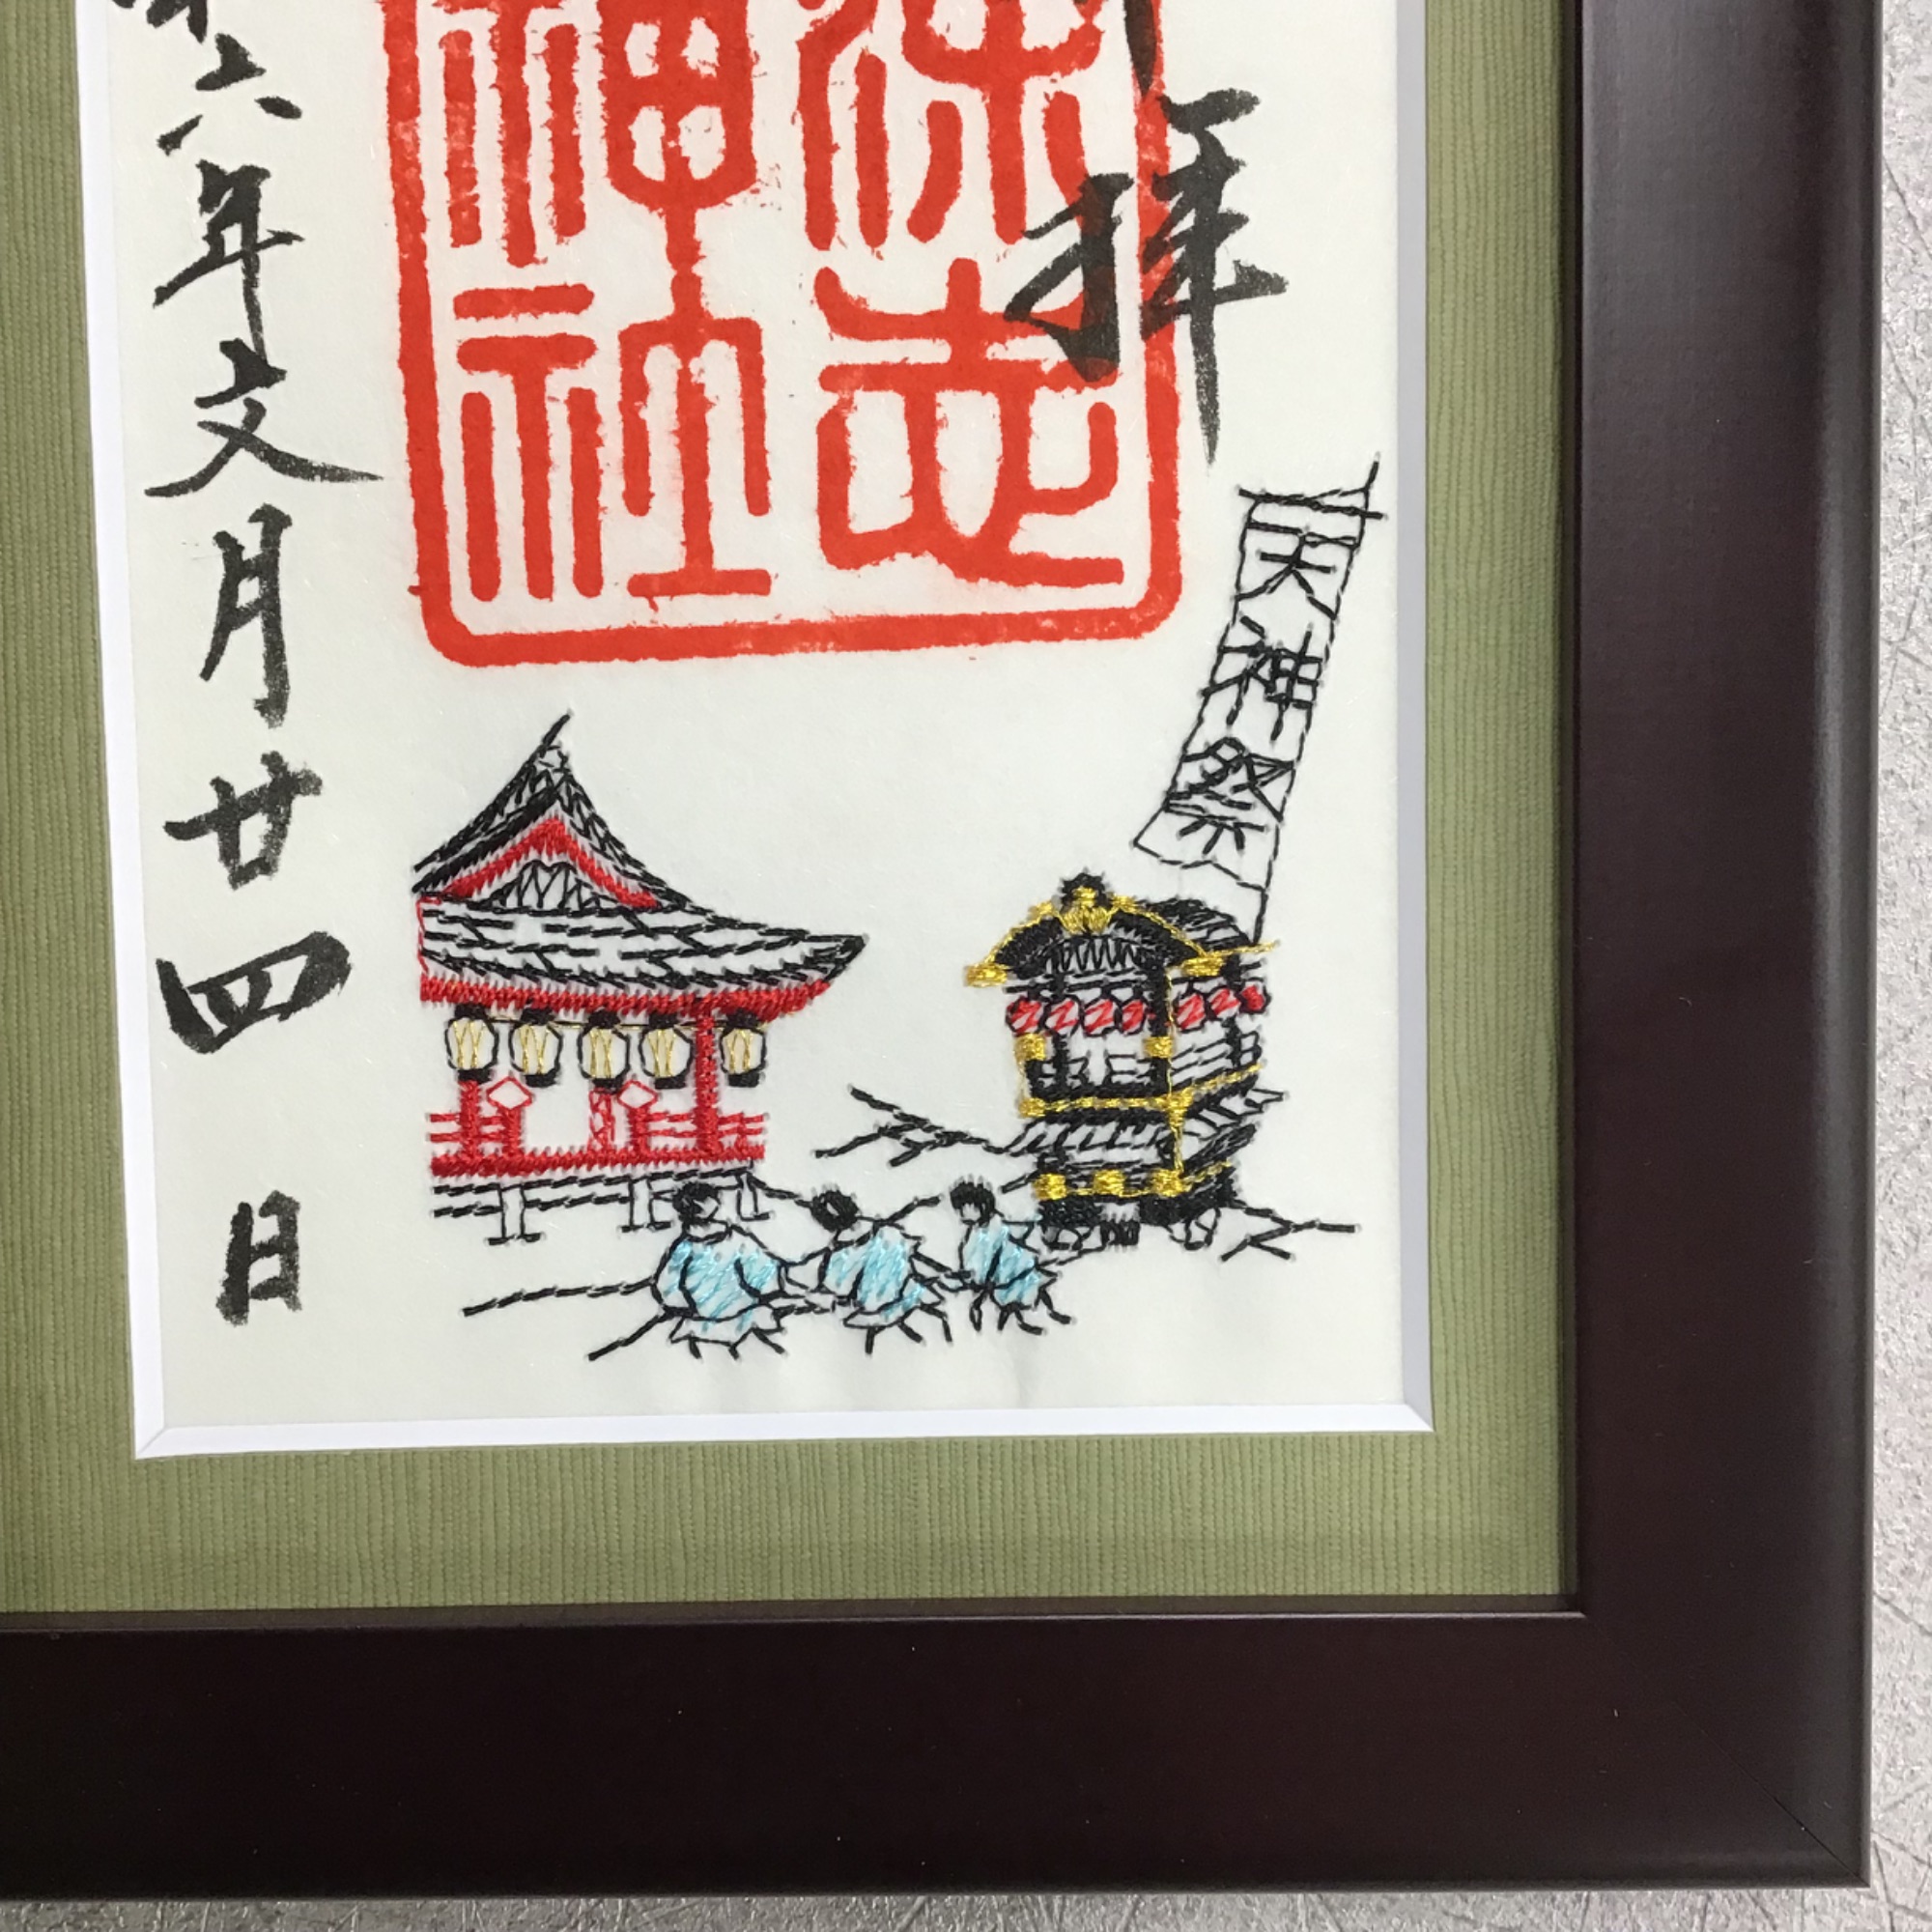 拝
深志
神社
天神祭
六年文月廿四日